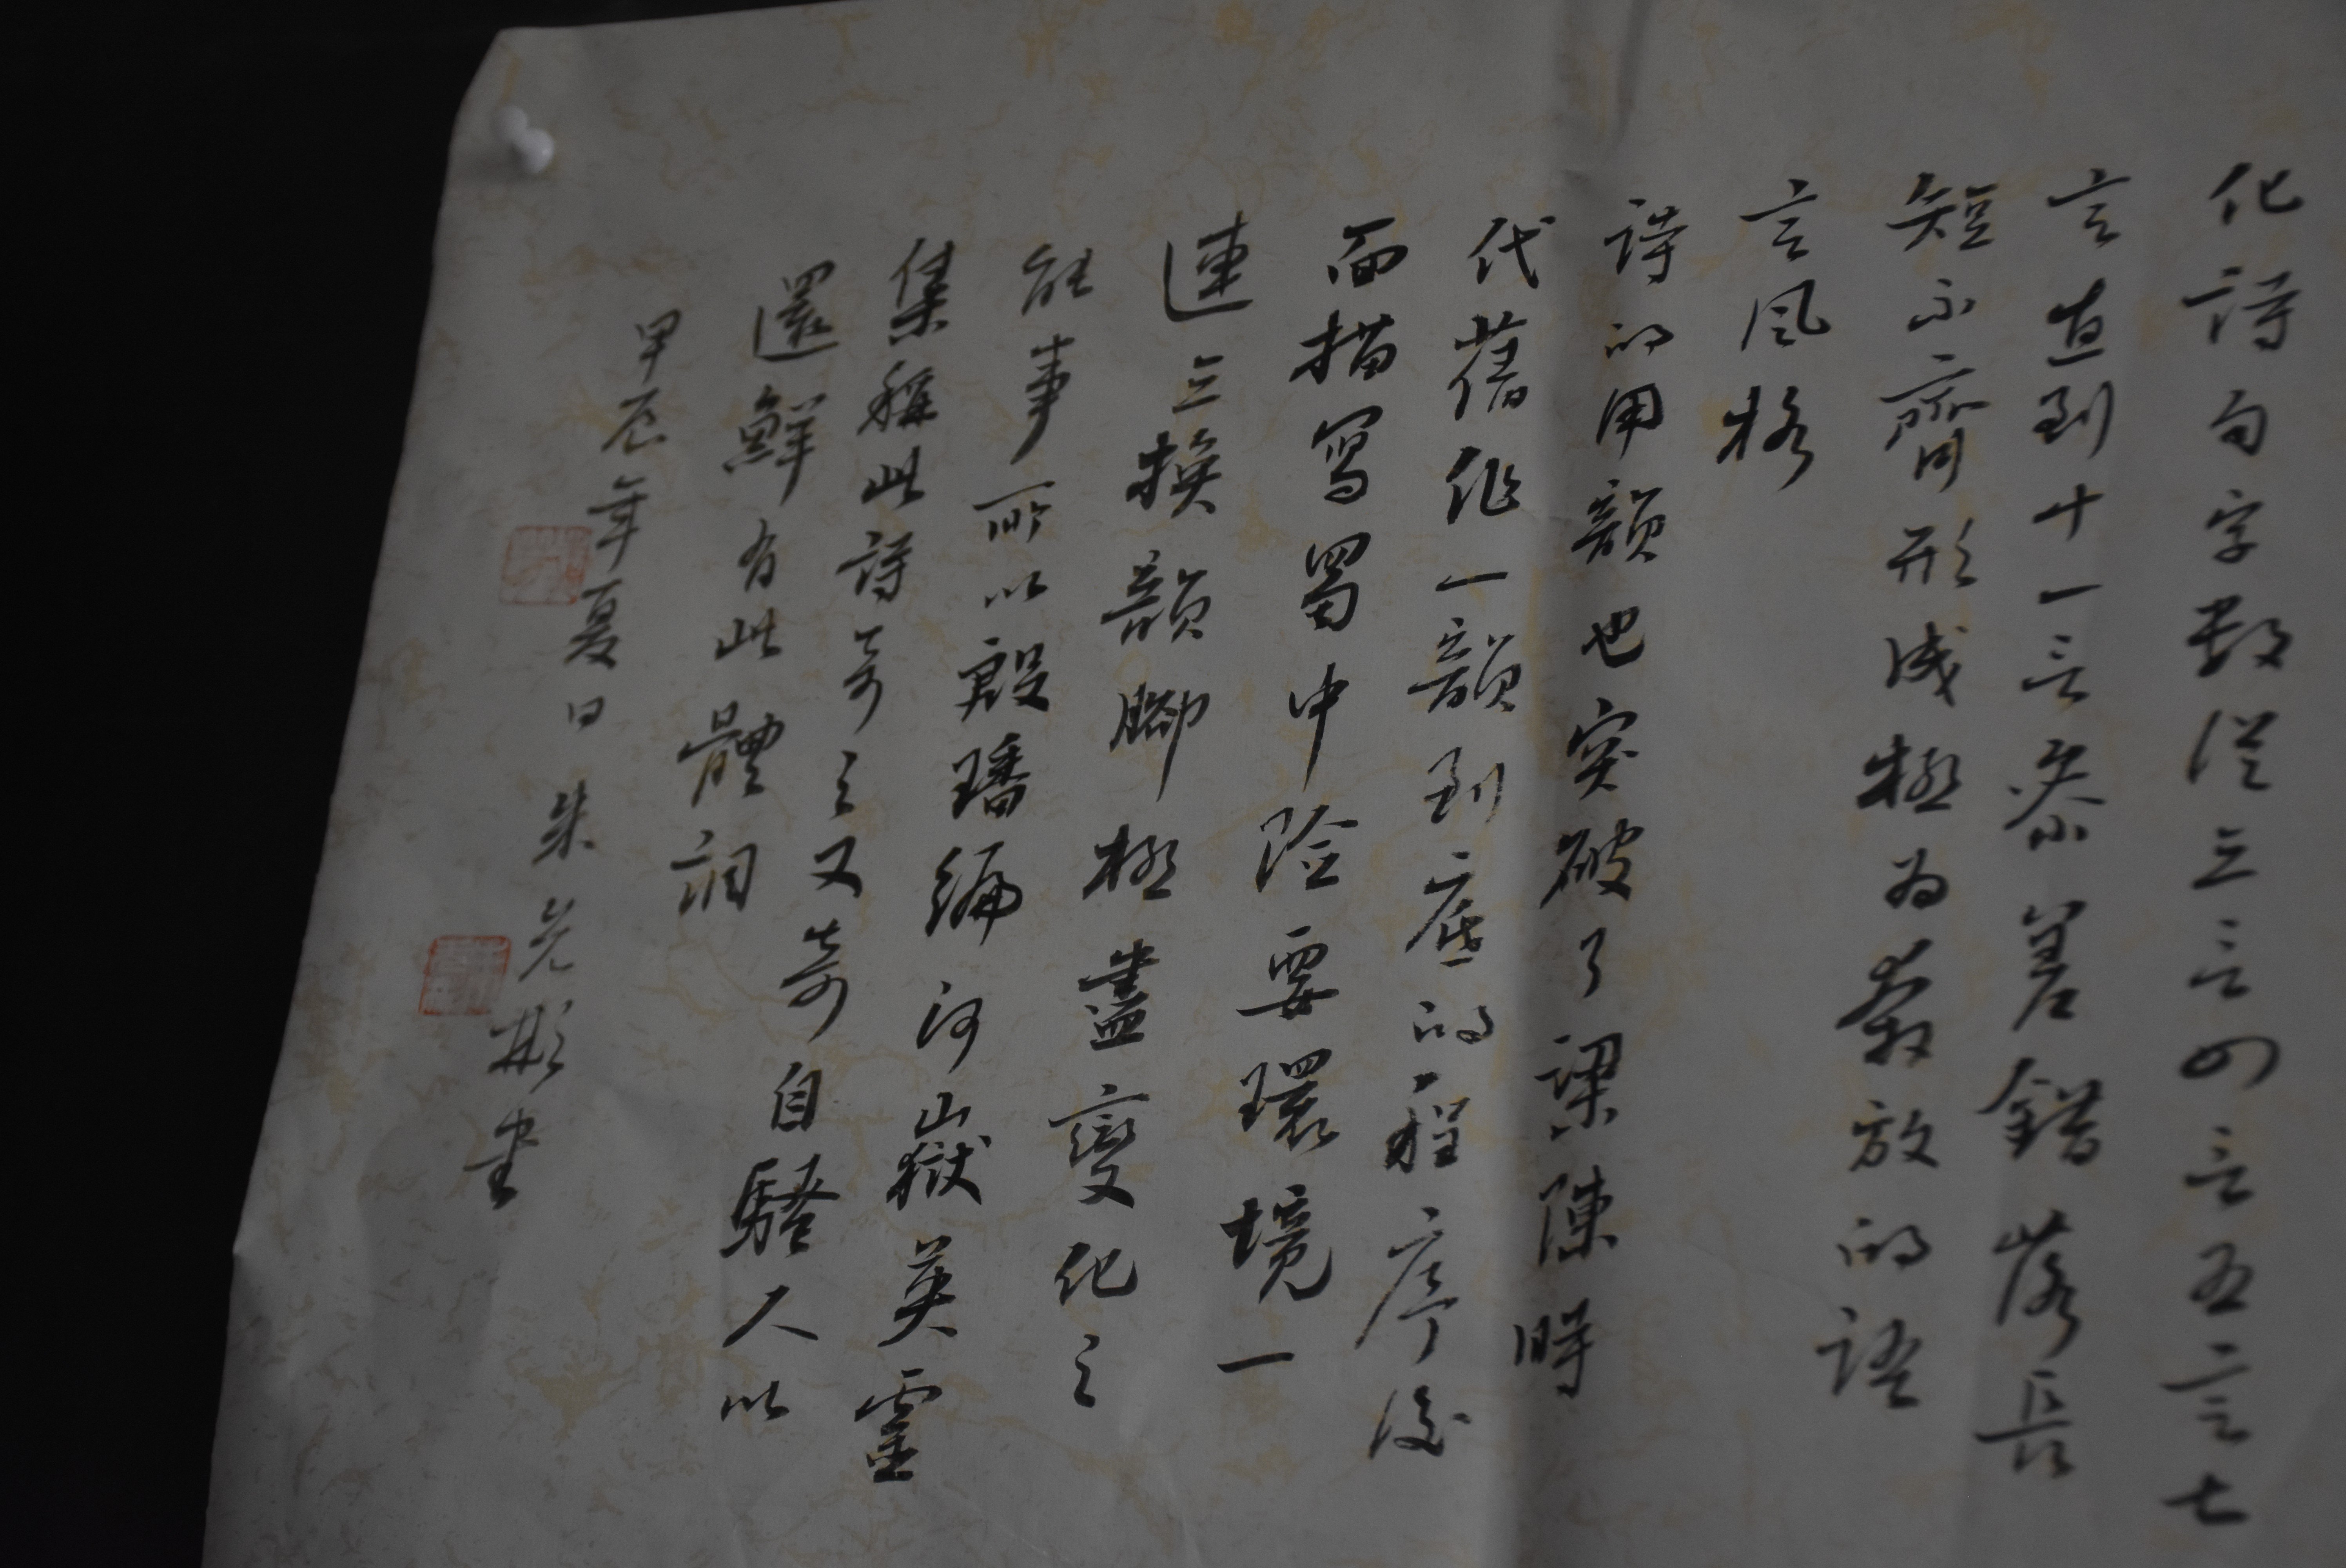 化詩句字數從三言四言五言七
言直到十一言參差錯落長
短不齊形成極為奔放的語
言風格
詩的用韻也突破了梁陳時
代舊作一韻到底的程序後
面描寫蜀中险要環境一
連三換韻腳極盡變化之
能事所以殷璠編河嶽英靈
集稱此詩奇之又奇自騷人以
還鮮有此體調
甲辰年夏日朱光彬書